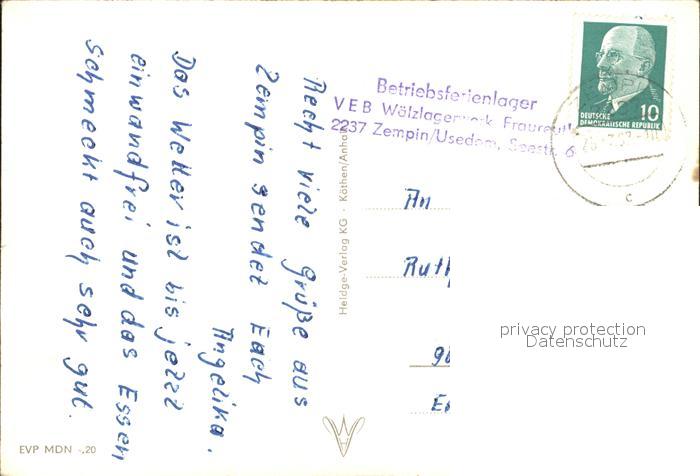 Recht viele Grüße aus
Zempin sendet Euch
Angelika.
Das Wetter ist bis jetzt
einwandfrei und das Essen
schmeckt auch sehr gut.
EVP MDN -,20
Heldge-Verlag KG · Köthen/Anhalt
Betriebsferienlager
VEB Wälzlagerwerk Fraureuth
2237 Zempin/Usedom, Seestr. 6
10
DEUTSCHE
DEMOKRATISCHE REPUBLIK
c
An
Ruth
privacy protection
Datenschutz